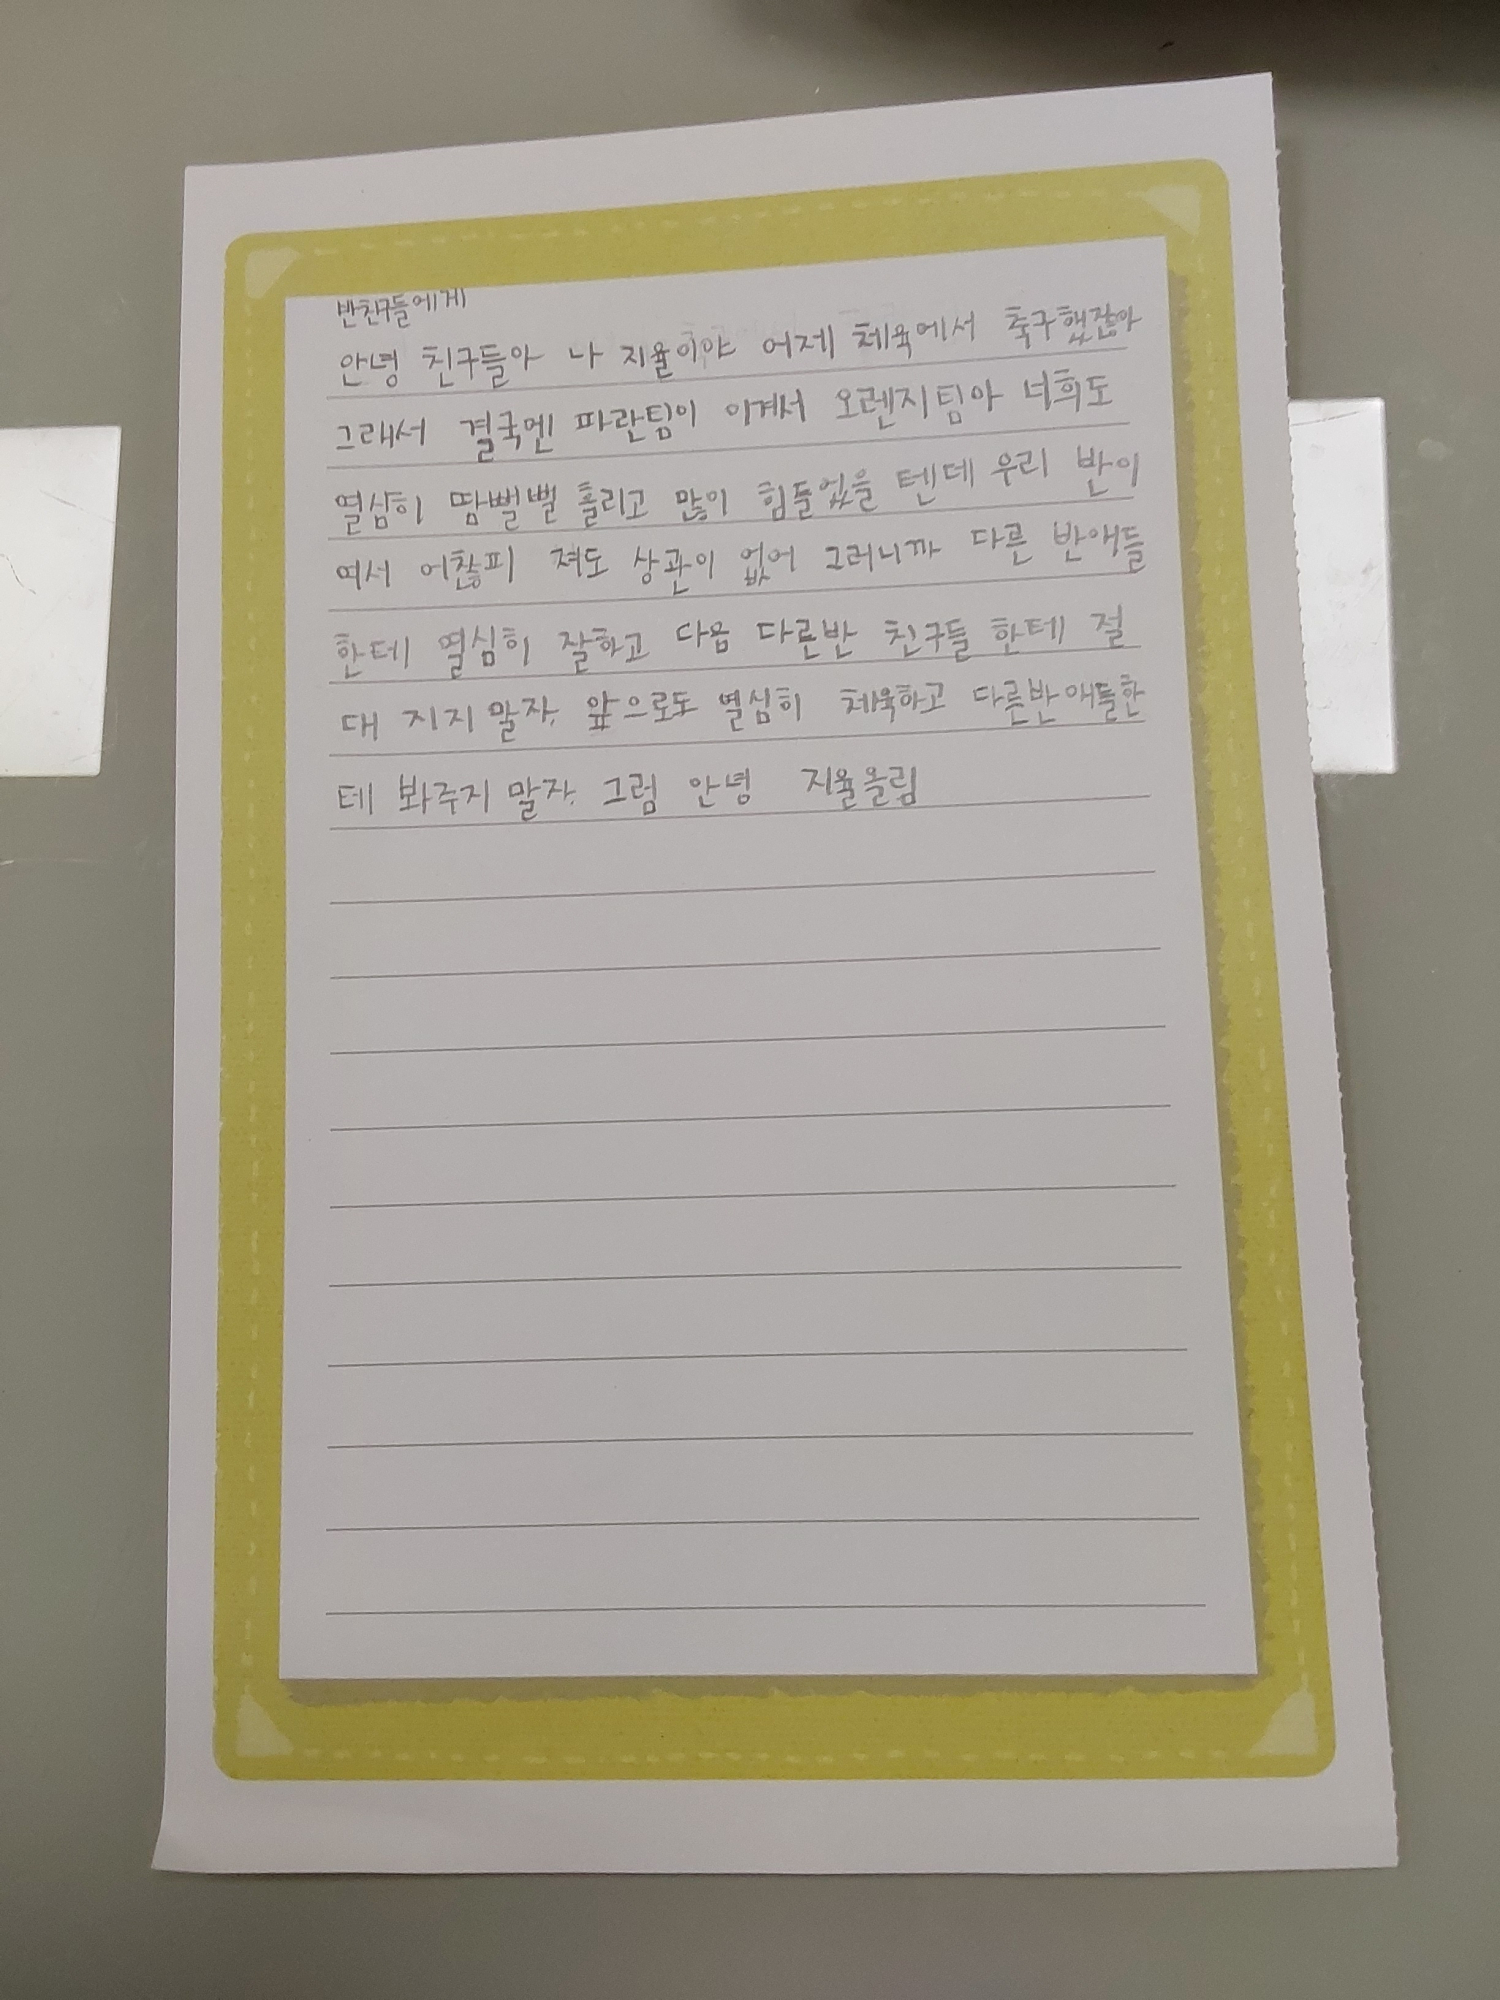 반친구들에게
안녕 친구들아 나 지율이야 어제 체육에서 축구했잖아
그래서 결국엔 파란팀이 이겨서 오렌지팀아 너희도
열심히 땀뻘뻘 흘리고 많이 힘들었을 텐데 우리 반이
여서 어찮피 져도 상관이 없어 그러니까 다른 반애들
한테 열심히 잘하고 다음 다른반 친구들 한테 절
대 지지 말자. 앞으로도 열심히 체육하고 다른반애들한
테 봐주지 말자. 그럼 안녕 지율올림